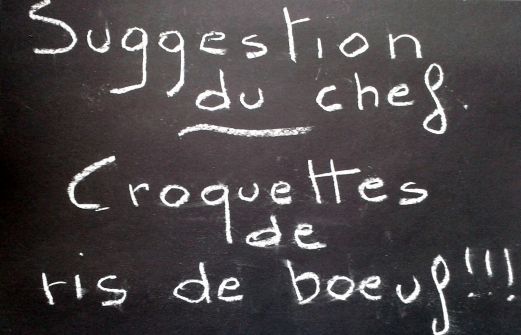 Suggestion
du chef.
Croquettes
de
ris de boeuf!!!